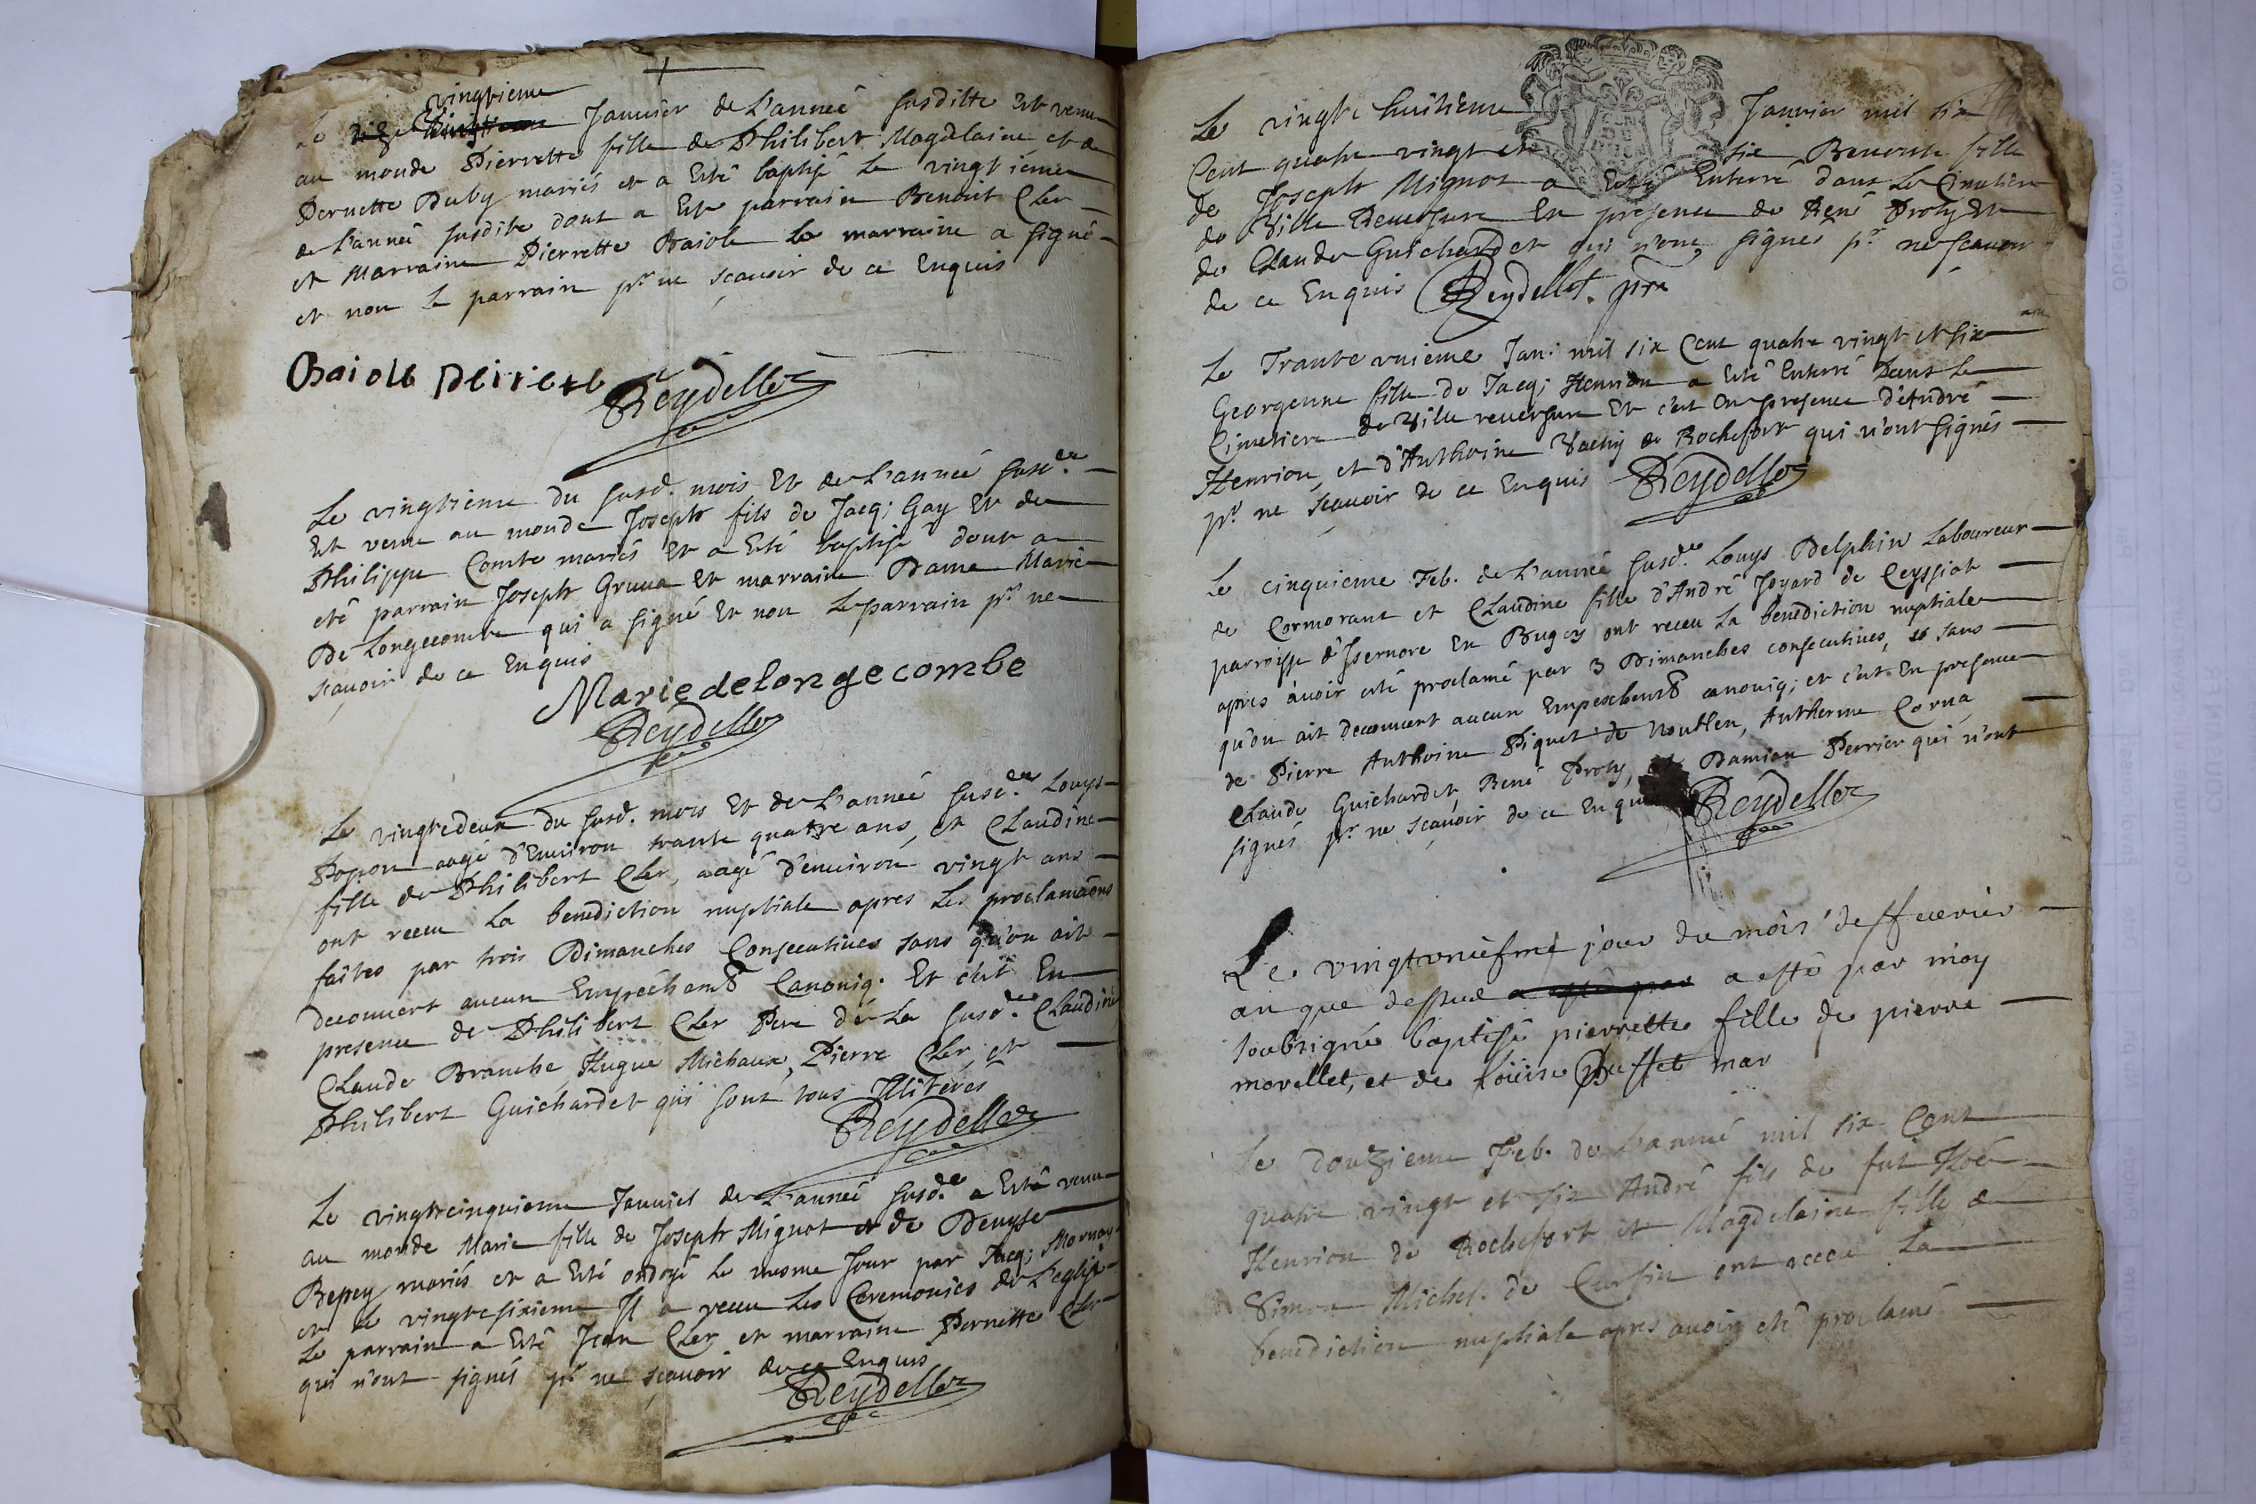 vingtieme
Le Janvier de L'anneé susditte Est venue
au monde Pierrette fille de Philibert Magdelaine et de
Pernette Duby mariés et a Esté baptisé Le vingtieme
de L'anneé susdite dont a Esté parrain Benoit Cler
et Marraine Pierrette Baiole La marraine a signé
et non le parrain pr. ne sçavoir de ce Enquis
Baiole Reydellet
Le vingtieme du susd. mois Et de L'anneé susd.e
Est venu au monde Joseph fils de Jacq; Gay Et de
Philippe Combe mariés Et a Esté baptisé dont a
eté parrain Joseph Et marraine Dame Marie
De Longecombe qui a signé Et non Le parrain pr. ne
sçavoir de ce Enquis
Marie de longecombe
Reydellet
Le vingtedeux du susd. mois Et de L'anneé susd.e Louys
Popon aagé d'Environ trante quatre ans, et Claudine
fille de Philibert Cler, aagé d'environ vingt ans
ont receu La benediction nuptiale apres Les
faites par trois Dimanches Consecutives sans qu'on ait
decouvert aucun Canoniq. Et c'est En
presence de Philibert Cler Pere de La susd.e Claudine
Claude Branche, Hugue Michaux, Pierre Cler, et
Philibert Guichardet qui sont tous
Reydellet
Le vingtcinquieme Janvier de L'anneé susd.e a Esté venue
au monde Marie fille de Joseph Mignot et de Denyse
Bepey mariés et a Esté ondoyé Le mesme Jour par Jacq; Mornay
et le vingtesixieme Il a receu Les Ceremonies de L'eglise
Le parrain a Esté Jean Cler et marraine Pernette Cler
qui n'ont signés pr. ne sçavoir de ce Enquis
Reydellet
Le vingte huitieme Janvier mil six
Cent quatre vingt et six Benoite fille
de Joseph Mignot a Esté Enterré dans Le Cimetiere
de Ville Reversure En presence de René Proty Et
de Claude Guichardet qui n'ont signés pr. ne scavoir
de ce Enquis Reydellet. pre
Le Trante unieme Jan: mil six Cent quatre vingt et six
Georgenne fille de Jacq; Henrion a Esté Enterré Dans Le
Cimetiere de Ville reversure Et c'est En presence d'André
Henrion, et d'Anthoine Vachy de Rochefort qui n'ont signés
pr. ne sçavoir de ce Enquis Reydellet
Le cinquieme Feb. de L'anneé susd.e Louys Delphin Laboureur
de Cormorant et Claudine fille d'André Joyard de Ceyssiat
parroisse d'Isernore En Bugey ont receu La benediction nuptiale
apres avoir eté proclamé par 3 Dimanches consecutives, et sans
qu'on ait decouvert aucun canoniq; et c'est En presence
de Pierre Anthoine Piquet de Antherme Corna
Claude Guichardet, René Proty, Damien Perrier qui n'ont
signés pr. ne sçavoir de ce Enquis Reydellet
Le vingtuniesme jour du mois de ffeuvrier
an que dessus a esté par moy
soubsigné baptissé pierrette fille de pierre
morellet, et de loüise Buffet mar
Le douzieme Feb. de L'anneé mil six Cent
quatre vingt et six André fils de fut
Henrion de Rochefort et Magdelaine fille de
Simon Michel de ont receu La
benediction nuptiale apres avoir eté proclamé